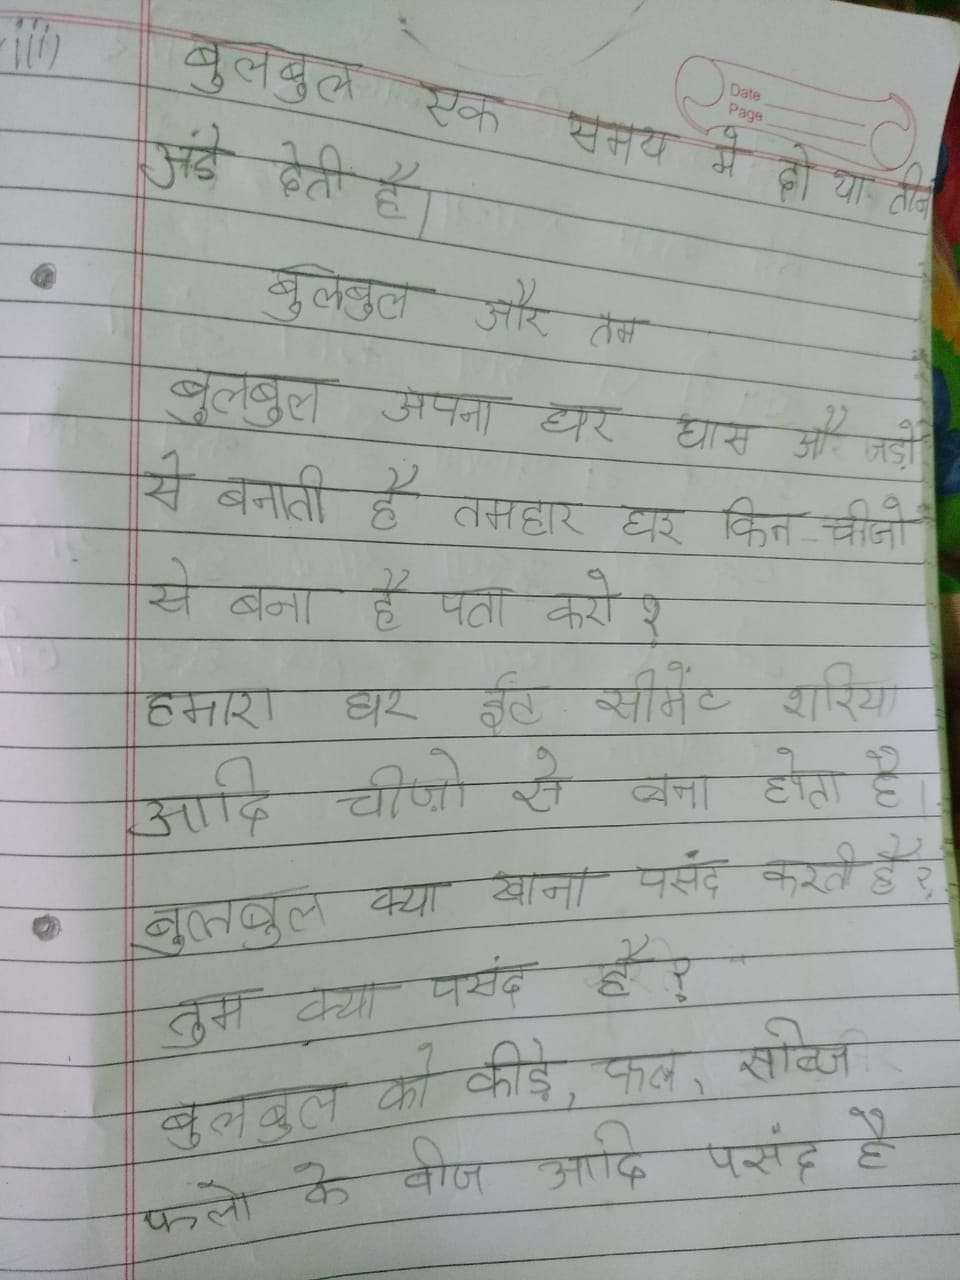 iii) बुलबुल एक समय में दो या तीन
अंडे देती है।
Date
Page
बुलबुल और तम
बुलबुल अपना घर घास औ जड़ों
से बनाती है तमहार घर किन चीजों
से बना है पता करो?
हमारा घर ईंट सीमेंट शरिया
आदि चीज़ो से बना होता है।
बुलबुल क्या खाना पसंद करती है?
तुम क्या पसंद है?
बुलबुल को कीड़े, फल, सब्जि
फलो के बीज आदि पसंद है